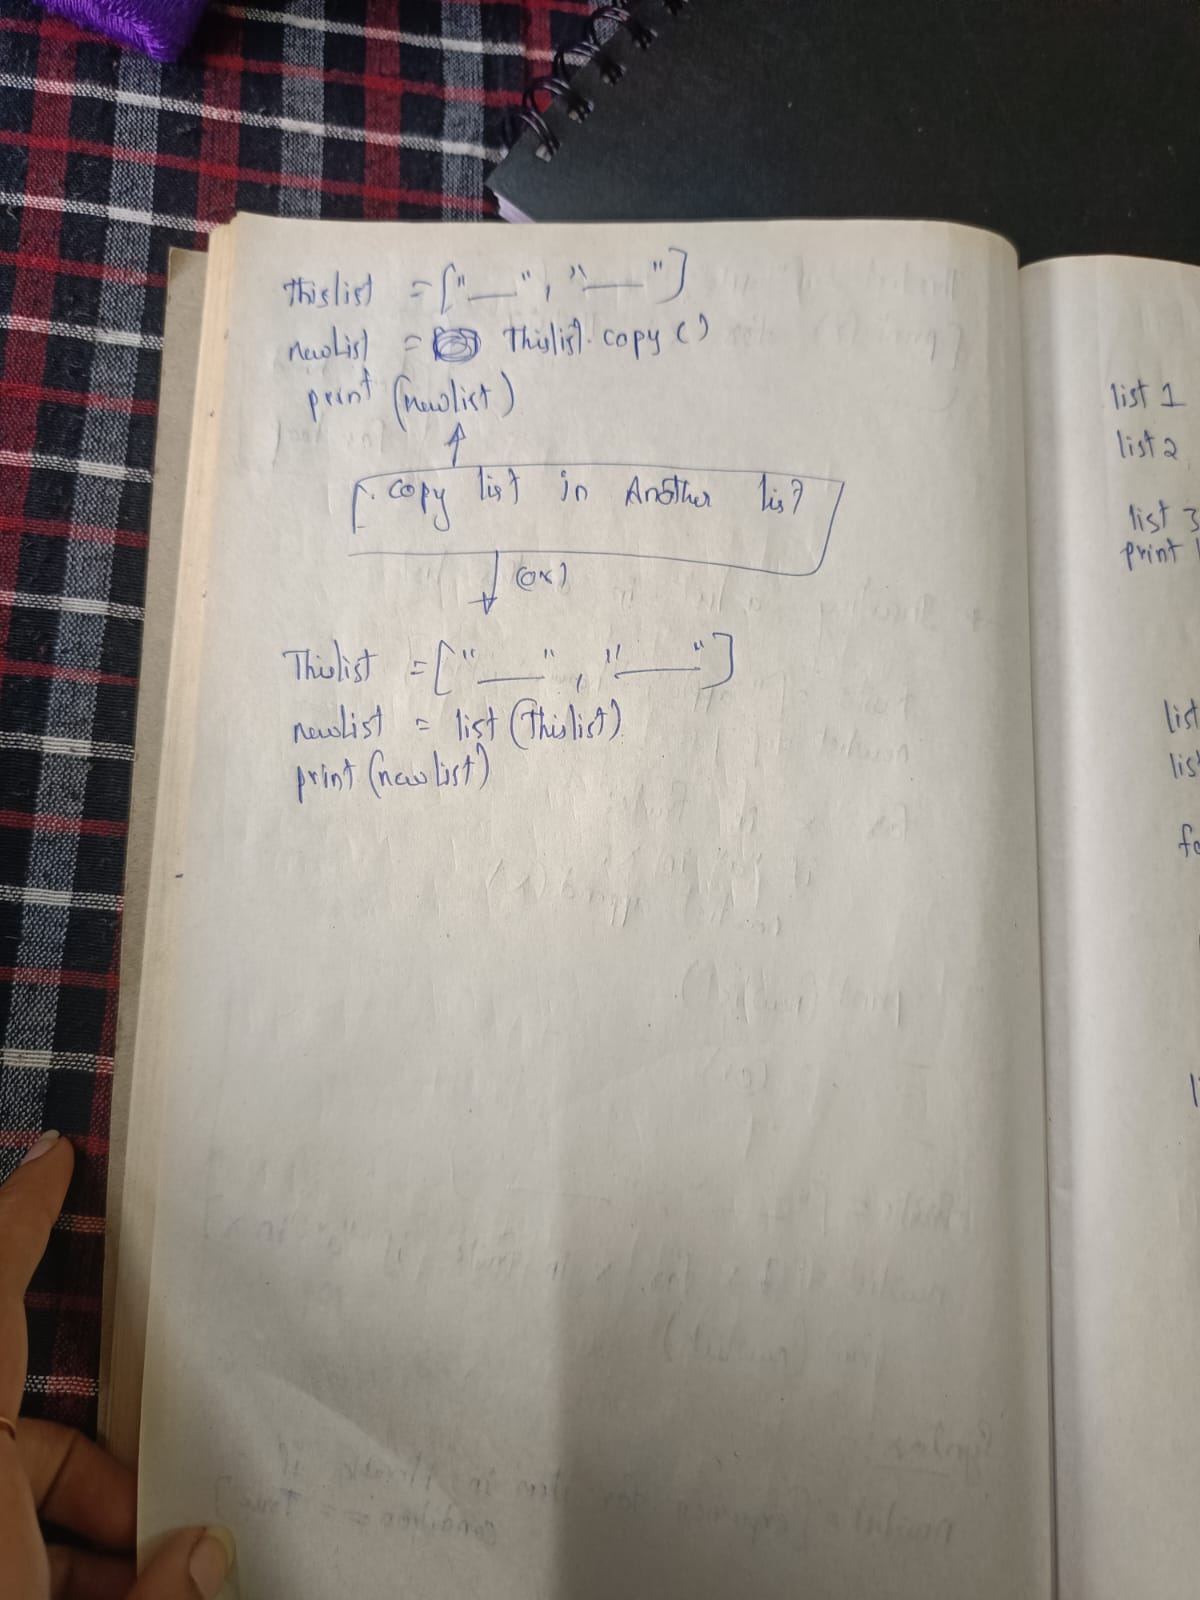 thislist = ["__", "__"]
newList = Thislist.copy()
print (newlist)
copy list in Another list
(or)
Thislist = ["__", "__"]
newList = list (Thislist)
print (newlist)
list 1
list 2
list 3
print
list
list